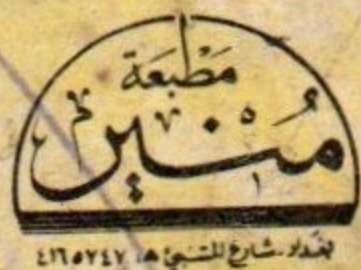 مَطْبَعَة
مُنير
بغداد. شارع المتنبي ه ٤١٦٥٧٤٧